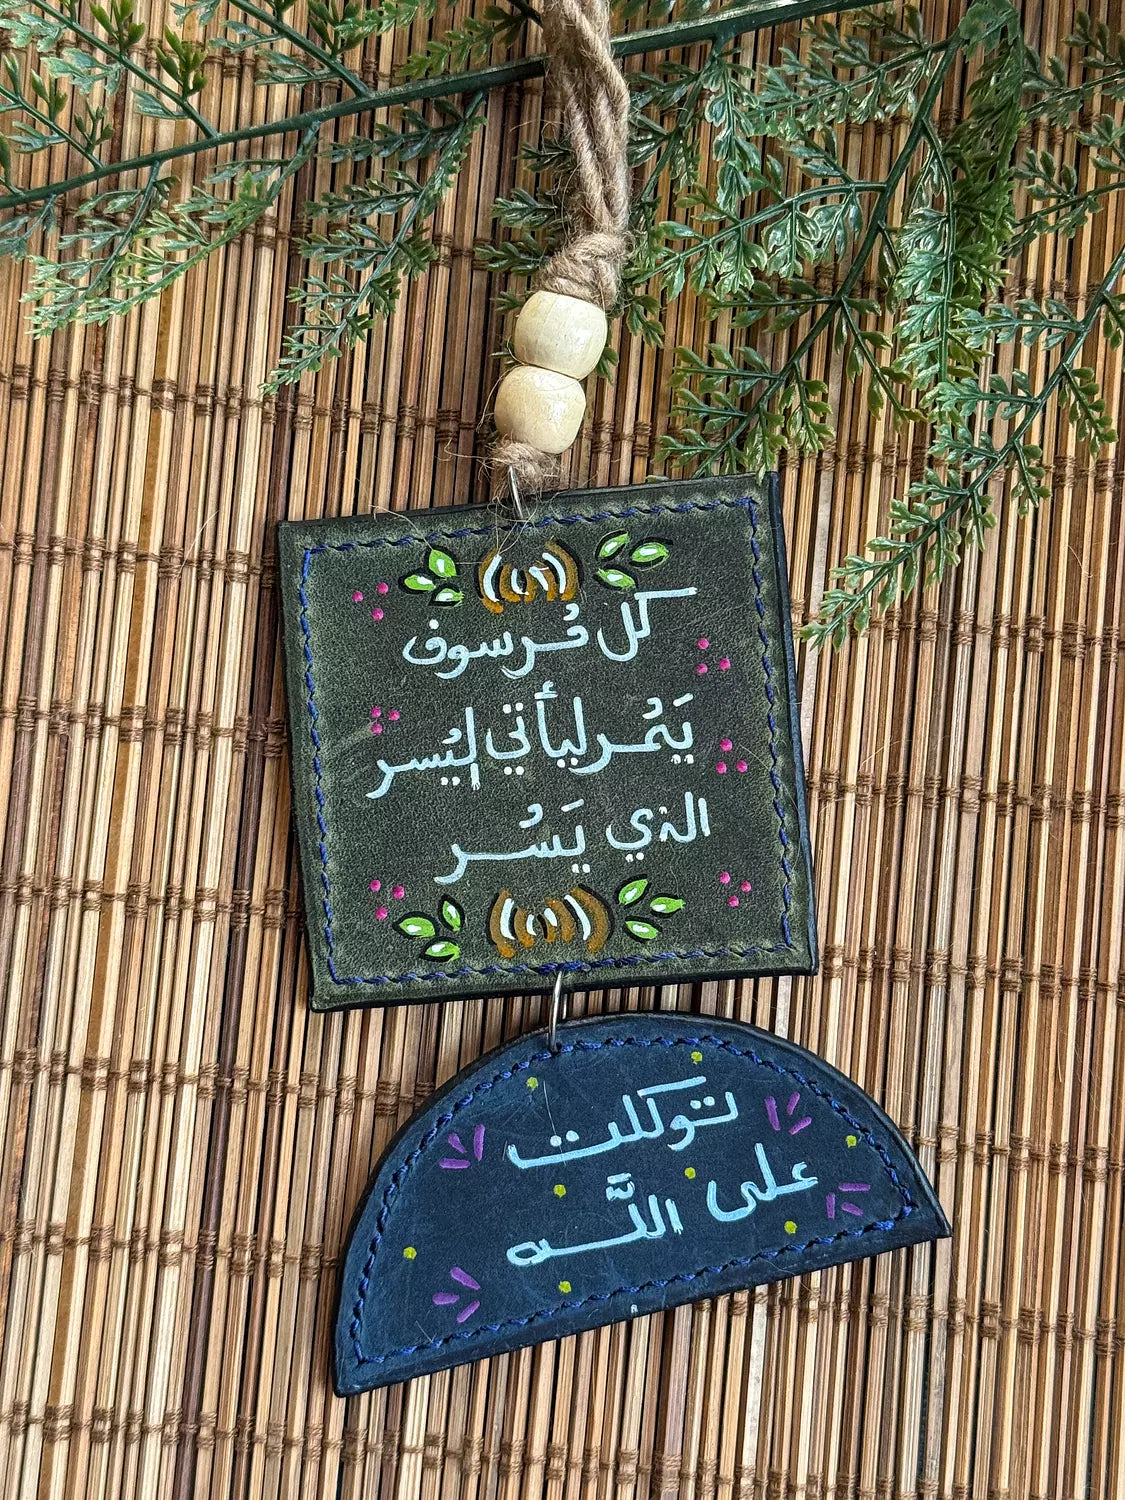 كل مُر سوف
يَمُر ليأتي اليُسر
الذي يَسُر
توكلت
على اللَّه